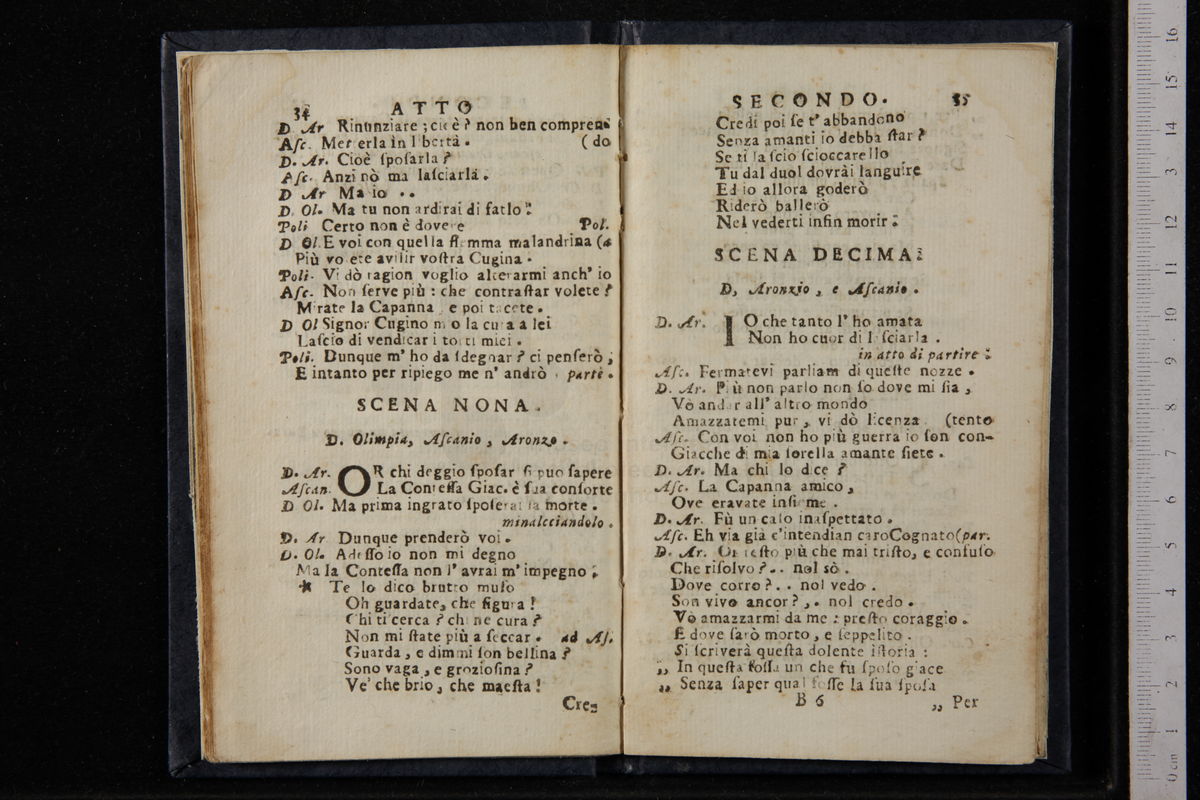 34 ATTO
D. Ar Rinunziare ; cioè ? non ben compren
Aſc. Metterla in libertà . ( do
D. Ar. Cioè ſpoſarla ?
Aſc. Anzi nò ma laſciarla .
D Ar Ma io . .
D. Ol. Ma tu non ardirai di farlo !
Poli Certo non è dovere Pol.
D Ol. E voi con quella flemma malandrina (a
Più volete avilir voſtra Cugina .
Poli. Vi dò ragion voglio alterarmi anch' io
Aſc. Non ſerve più : che contraſtar volete ?
Mirate la Capanna , e poi tacete .
D Ol Signor Cugino mio la cura a lei
Laſcio di vendicar i torti miei .
Poli. Dunque m' ho da ſdegnar ? ci penſerò ;
E intanto per ripiego me n' andrò . parte .
SCENA NONA .
D. Olimpia, Aſcanio , Aronzo .
D. Ar. OR chi deggio ſpoſar ſi puo ſapere
Aſcan. La Conteſſa Giac. è ſua conſorte
D Ol. Ma prima ingrato ſpoſerai la morte .
minalcciandolo .
D. Ar Dunque prenderò voi .
D. Ol. Adeſſo io non mi degno
Ma la Conteſſa non l' avrai m' impegno ;
* Te lo dico brutto muſo
Oh guardate, che figura !
Chi ti cerca ? chi ne cura ?
Non mi ſtate più a ſeccar . ad Aſ.
Guarda , e dimmi ſon bellina ?
Sono vaga , e grozioſina ?
Ve' che brio , che maeſta !
Cre-
SECONDO. 35
Credi poi ſe t' abbandono
Senza amanti io debba ſtar ?
Se ti laſcio ſcioccarello
Tu dal duol dovrài languire
Ed io allora goderò
Riderò ballerò
Nel vederti infin morir .
SCENA DECIMA.
D, Aronzio , e Aſcanio .
D. Ar. IO che tanto l' ho amata
Non ho cuor di laſciarla .
in atto di partire .
Aſc. Fermatevi parliam di queſte nozze .
D. Ar. Più non parlo non ſo dove mi ſia ,
Vò andar all' altro mondo
Amazzatemi pur , vi dò licenza . (tento
Aſc. Con voi non ho più guerra io ſon con-
Giacche di mia ſorella amante ſiete .
D. Ar. Ma chi lo dice ?
Aſc. La Capanna amico ,
Ove eravate inſieme .
D. Ar. Fù un caſo inaſpettato .
Aſc. Eh via già c'intendian caro Cognato (par.
D. Ar. Or reſto più che mai triſto, e confuſo
Che riſolvo ? . . nol sò .
Dove corro ? . . nol vedo .
Son vivo ancor ? , . nol credo .
Vò amazzarmi da me : preſto coraggio .
E dove ſarò morto , e ſeppelito .
Si ſcriverà queſta dolente iſtoria :
„ In queſta foſſa un che fu ſpoſo giace
„ Senza ſaper qual foſſe la ſua ſpoſa
B 6 „ Per
0 cm 1 2 3 4 5 6 7 8 9 10 11 12 13 14 15 16